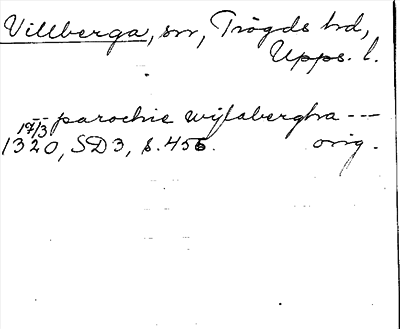 Villberga, sn, Trögds hd,
Upps. l.
-- parochie wijlabergha ---
17/3 1320, SD3, s. 456. orig.